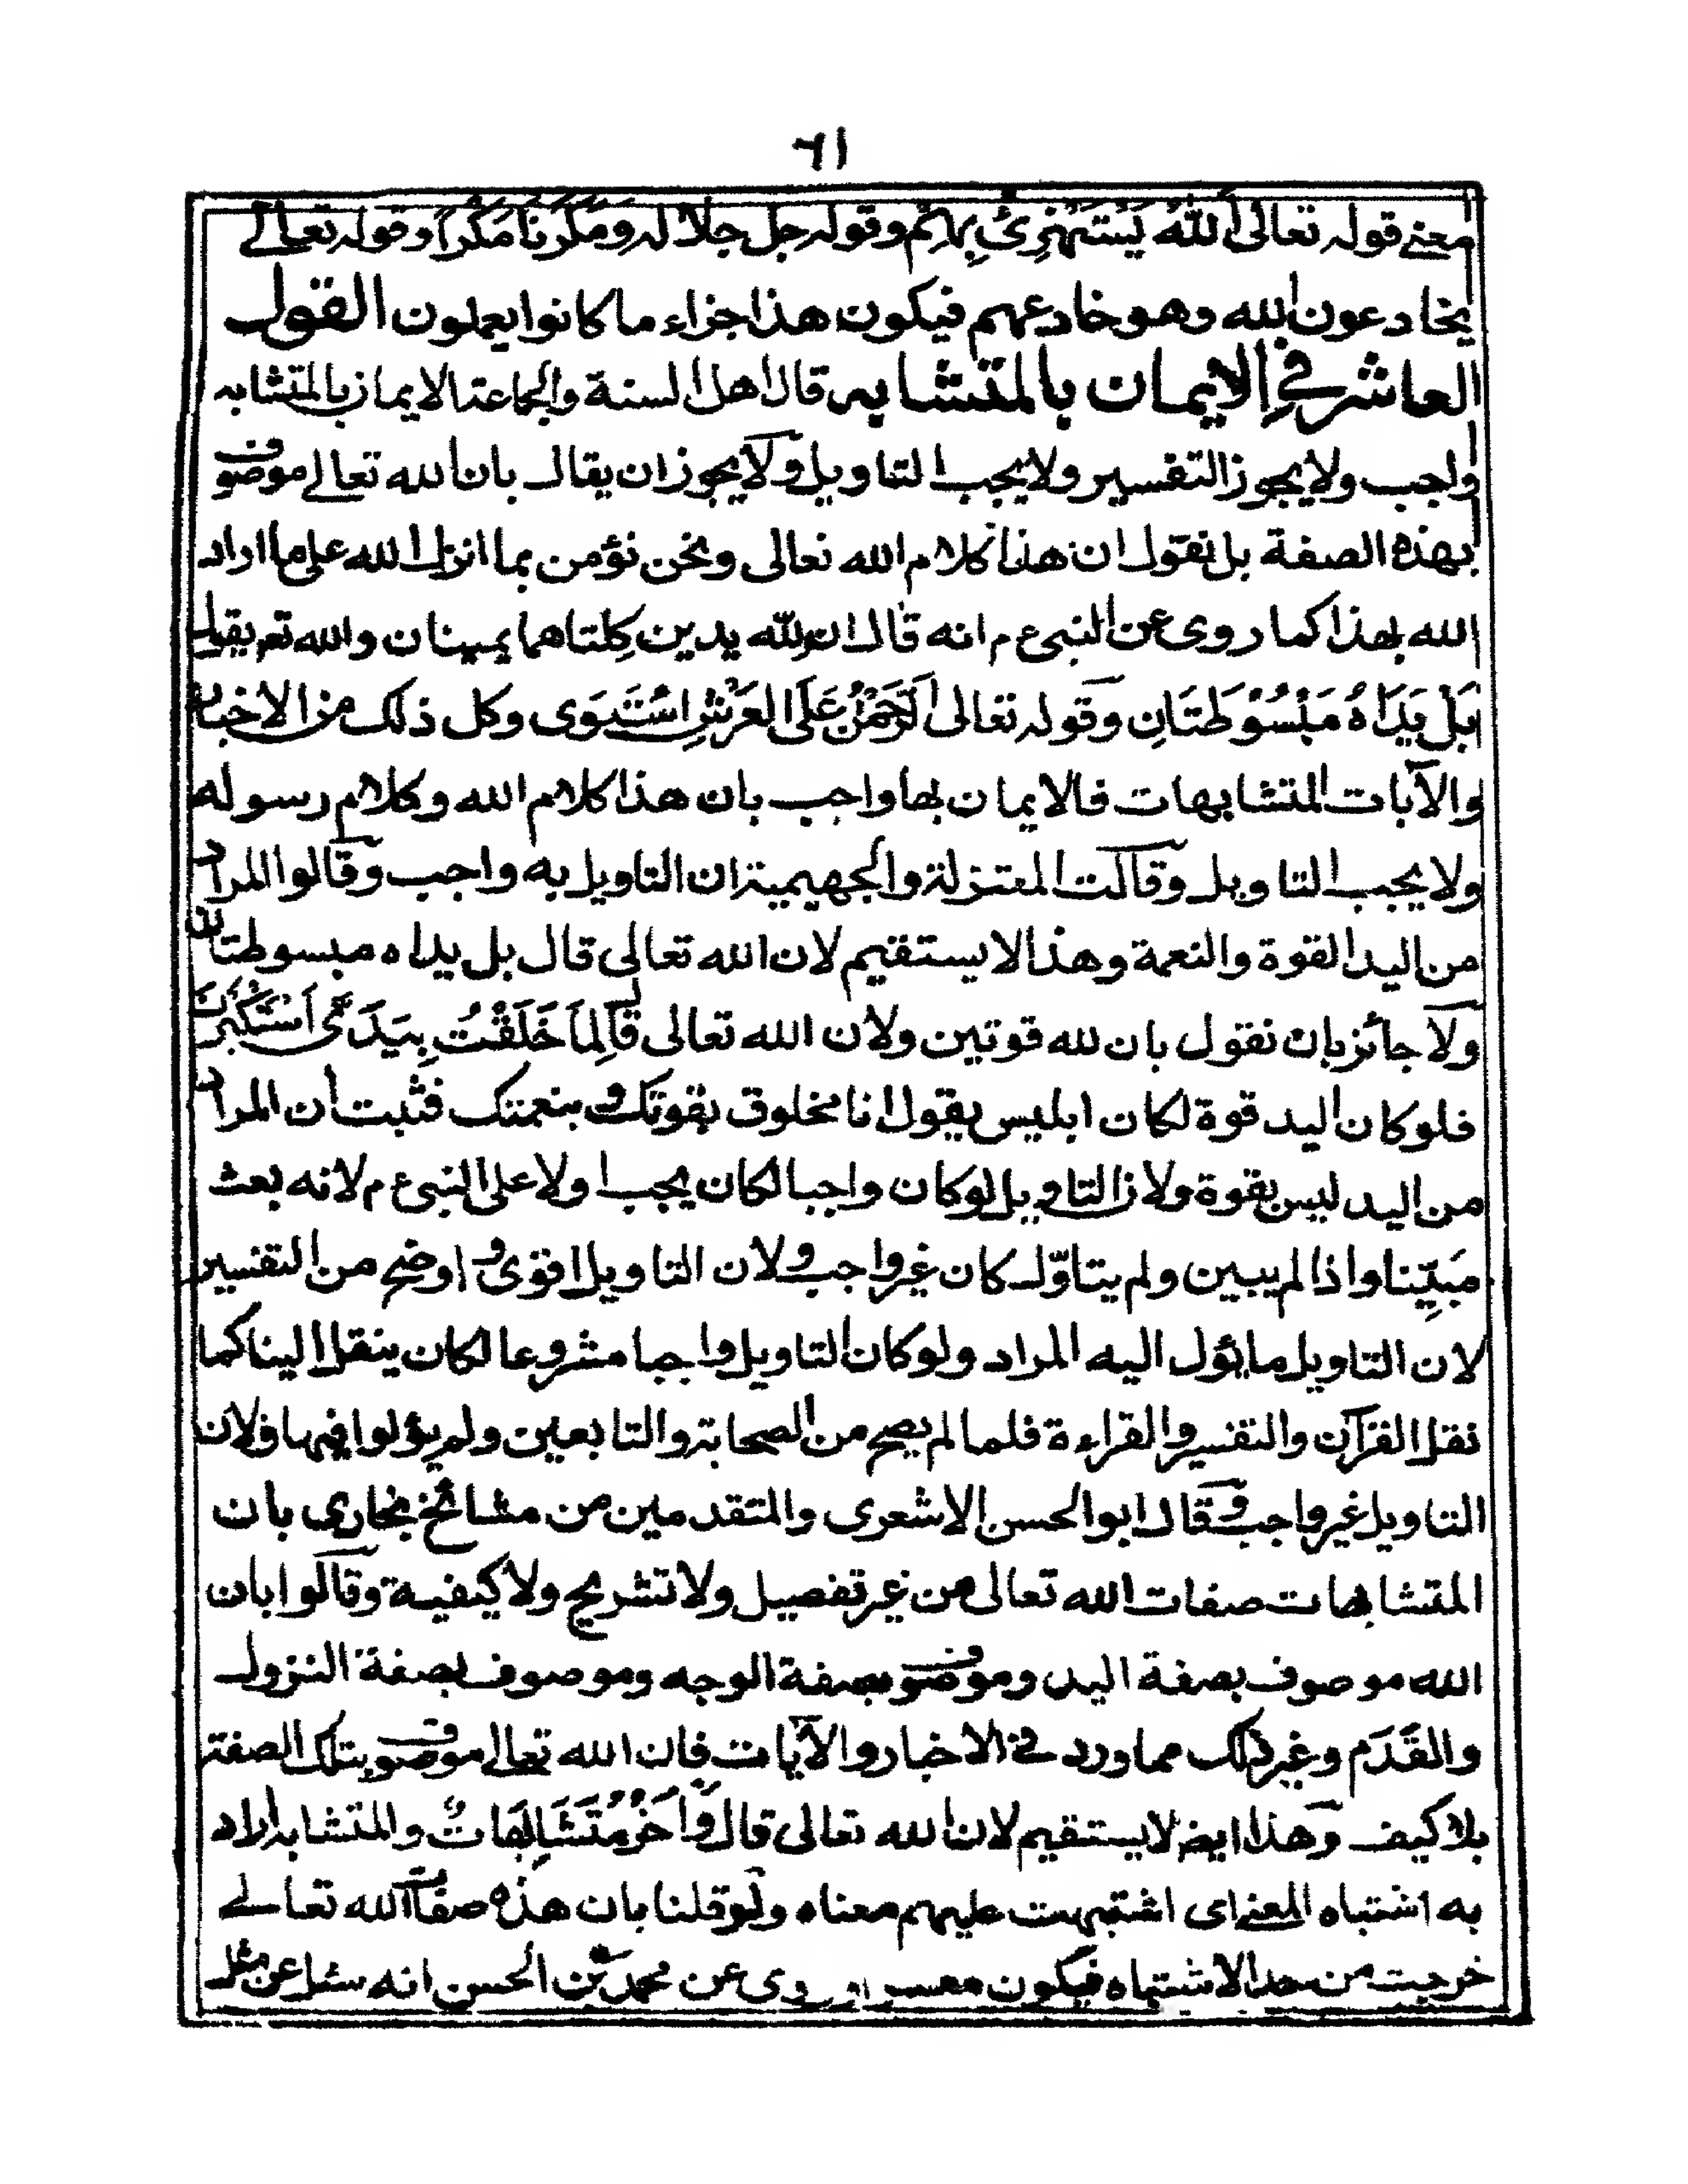 ٦١
معنى قوله تعالى اَللّٰهُ يَسْتَهْزِئُ بِهِمْ وقوله جل جلاله وَمَكَرْنَا مَكْرًا وقوله تعالى
يخادعون الله وهو خادعهم فيكون هذا جزاء ما كانوا يعملون القول
العاشر في الايمان بالمتشابه قال اهل السنة والجماعة الايمان بالمتشابه
واجب ولا يجوز التفسير ولا يجب التاويل ولا يجوز ان يقال بان الله تعالى موصوف
بهذه الصفة بل نقول ان هذا كلام الله تعالى ونحن نؤمن بما انزل الله على ما اراد
الله بهذا كما روى عن النبى ع م انه قال ان لله يدين كِلتاهما يمينان والله تع يقول
بَلْ يَدَاهُ مَبْسُوْطَتَانِ وقوله تعالى اَلرَّحْمٰنُ عَلَى العَرْشِ اسْتَوَى وكل ذلك من الاخبار
والآيات المتشابهات فالايمان بها واجب بان هذا كلام الله وكلام رسوله
ولا يجب التاويل وقالت المعتزلة والجهيمية ان التاويل به واجب وقالوا المراد
من اليد القوة والنعمة وهذا لا يستقيم لان الله تعالى قال بل يداه مبسوطتان
ولا جائز بان نقول بان لله قوتين ولان الله تعالى قال لِمَا خَلَقْتُ بِيَدَىَّ اَسْتَكْبَرْتَ
فلو كان اليد قوة لكان ابليس يقول انا مخلوق بقوتك وبنعمتك فثبت ان المراد
من اليد ليس بقوة ولان التاويل لو كان واجبا لكان يجب اولا على النبى ع م لانه بعث
مَبيِّنا واذا لم يبين ولم يتاوّل كان غير واجب ولان التاويل اقوى واوضح من التفسير
لان التاويل ما يؤل اليه المراد ولو كان التاويل واجبا مشروعا لكان ينقل الينا كما
نقل القرآن والتفسير والقراءة فلما لم يصح من الصحابة والتابعين ولم يؤلوا فيها ولان
التاويل غير واجب وقال ابو الحسن الاشعرى والمتقدمين من مشائخ بخارى بان
المتشابهات صفات الله تعالى من غير تفصيل ولا تشريح ولا كيفية وقالوا بان
الله موصوف بصفة اليد وموصوف بصفة الوجه وموصوف بصفة النزول
والقَدَم وغير ذلك مما ورد فى الاخبار والآيات فان الله تعالى موصوف بتلك الصفة
بلا كيف وهذا ايضا لا يستقيم لان الله تعالى قال وَاُخَرُ مُتَشَابِهَاتٌ والمتشابه اراد
به اشتباه المعنى اى اشتبهت عليهم معناه ولو قلنا بان هذه صفات الله تعالى
خرجت من حد الاشتباه فيكون روى عن محمد بن الحسن انه سئل عن مثل